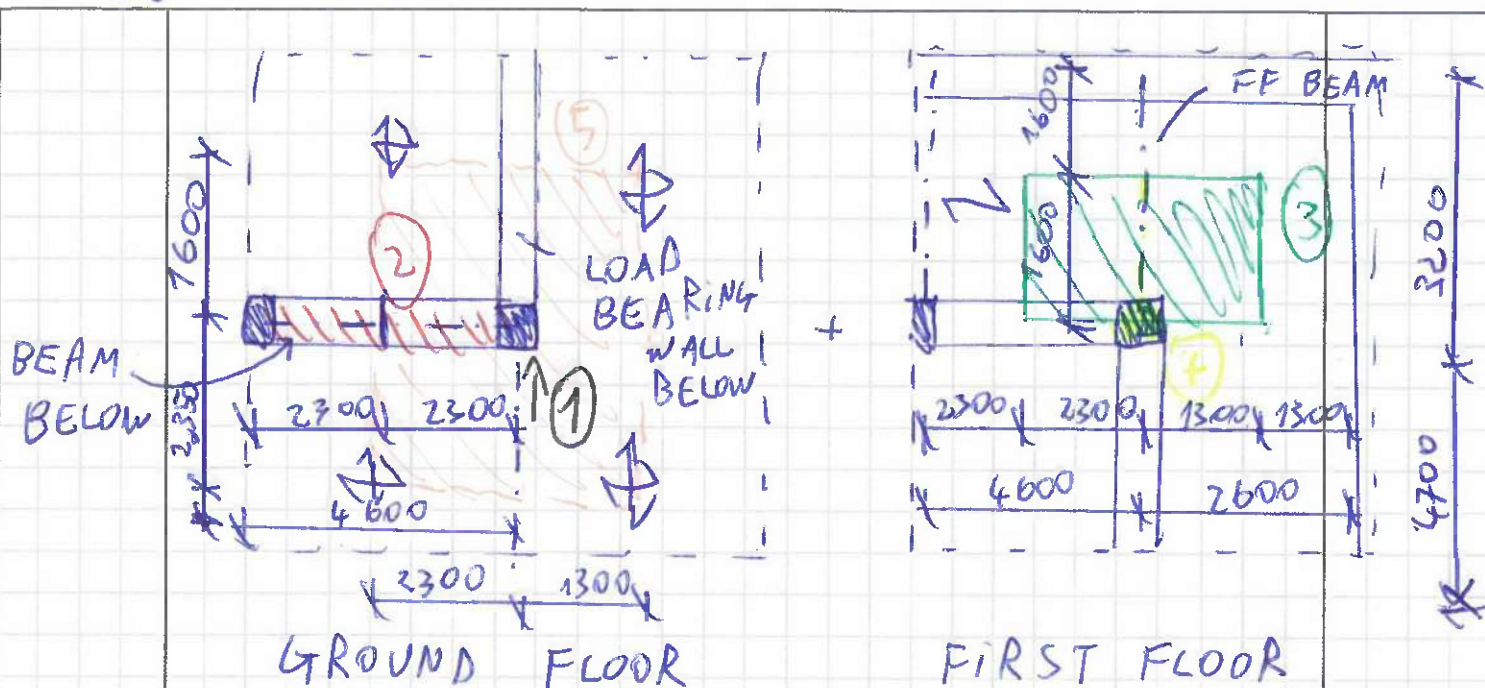 5
1600
2
LOAD
BEARING
WALL
BELOW
BEAM
BELOW
2350
2300
2300
1
4600
2300
1300
GROUND FLOOR
+
FF BEAM
1600
1600
3
4
2300
2300
1300
1300
4600
2600
3200
4700
FIRST FLOOR